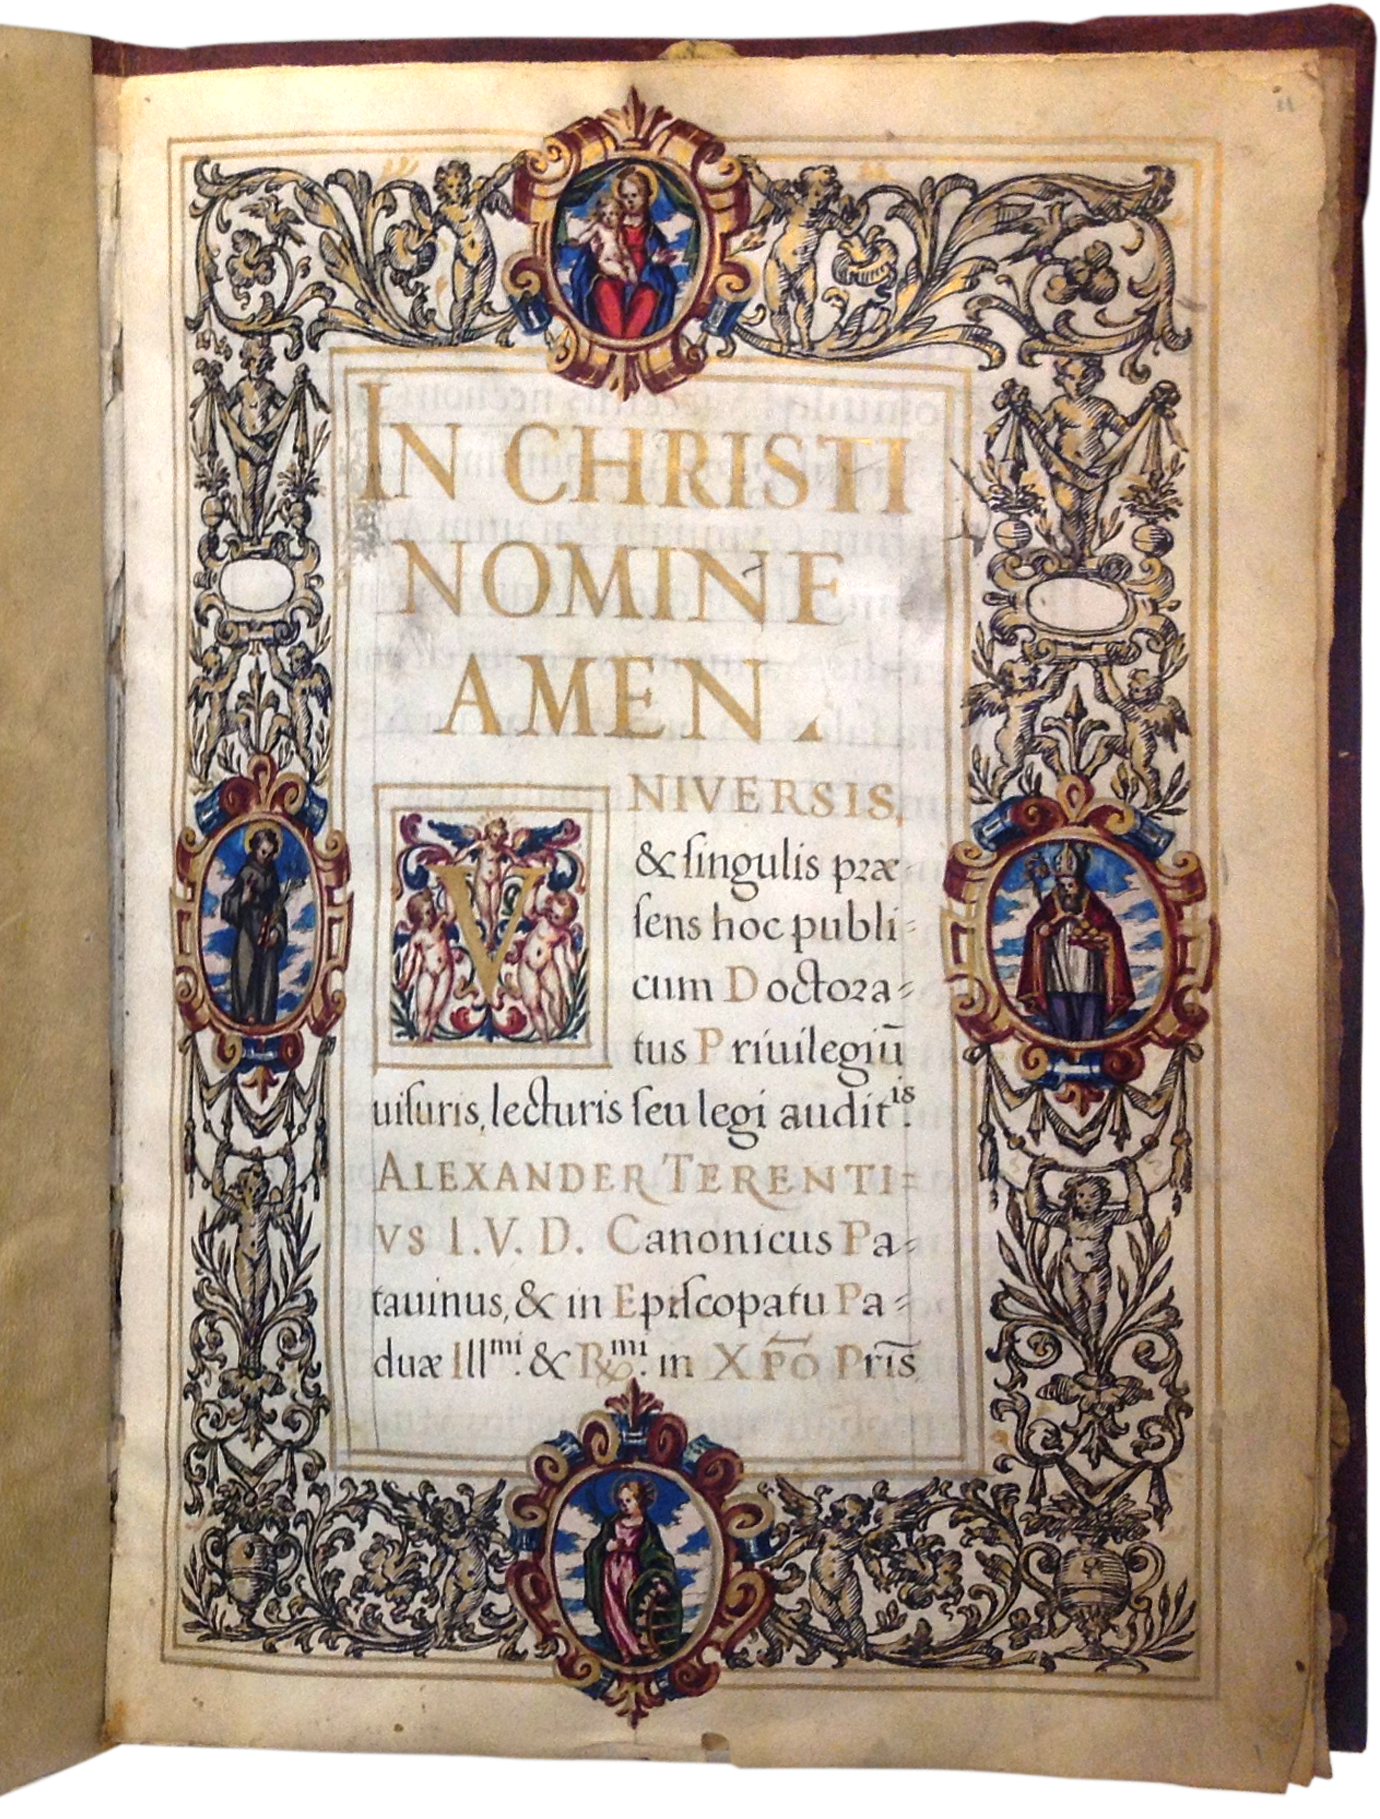 IN CHRISTI
NOMINE
AMEN.
VNIVERSIS,
& ſingulis præ
ſens hoc publi=
cum Doctora=
tus Priuilegiū
uiſuris, lecturis ſeu legi audit^is.
ALEXANDER TERENTI=
VS I.V.D. Canonicus Pa=
tauinus, & in Epiſcopatu Pa=
duæ Ill^mi. & R^mi. in XPO Pris